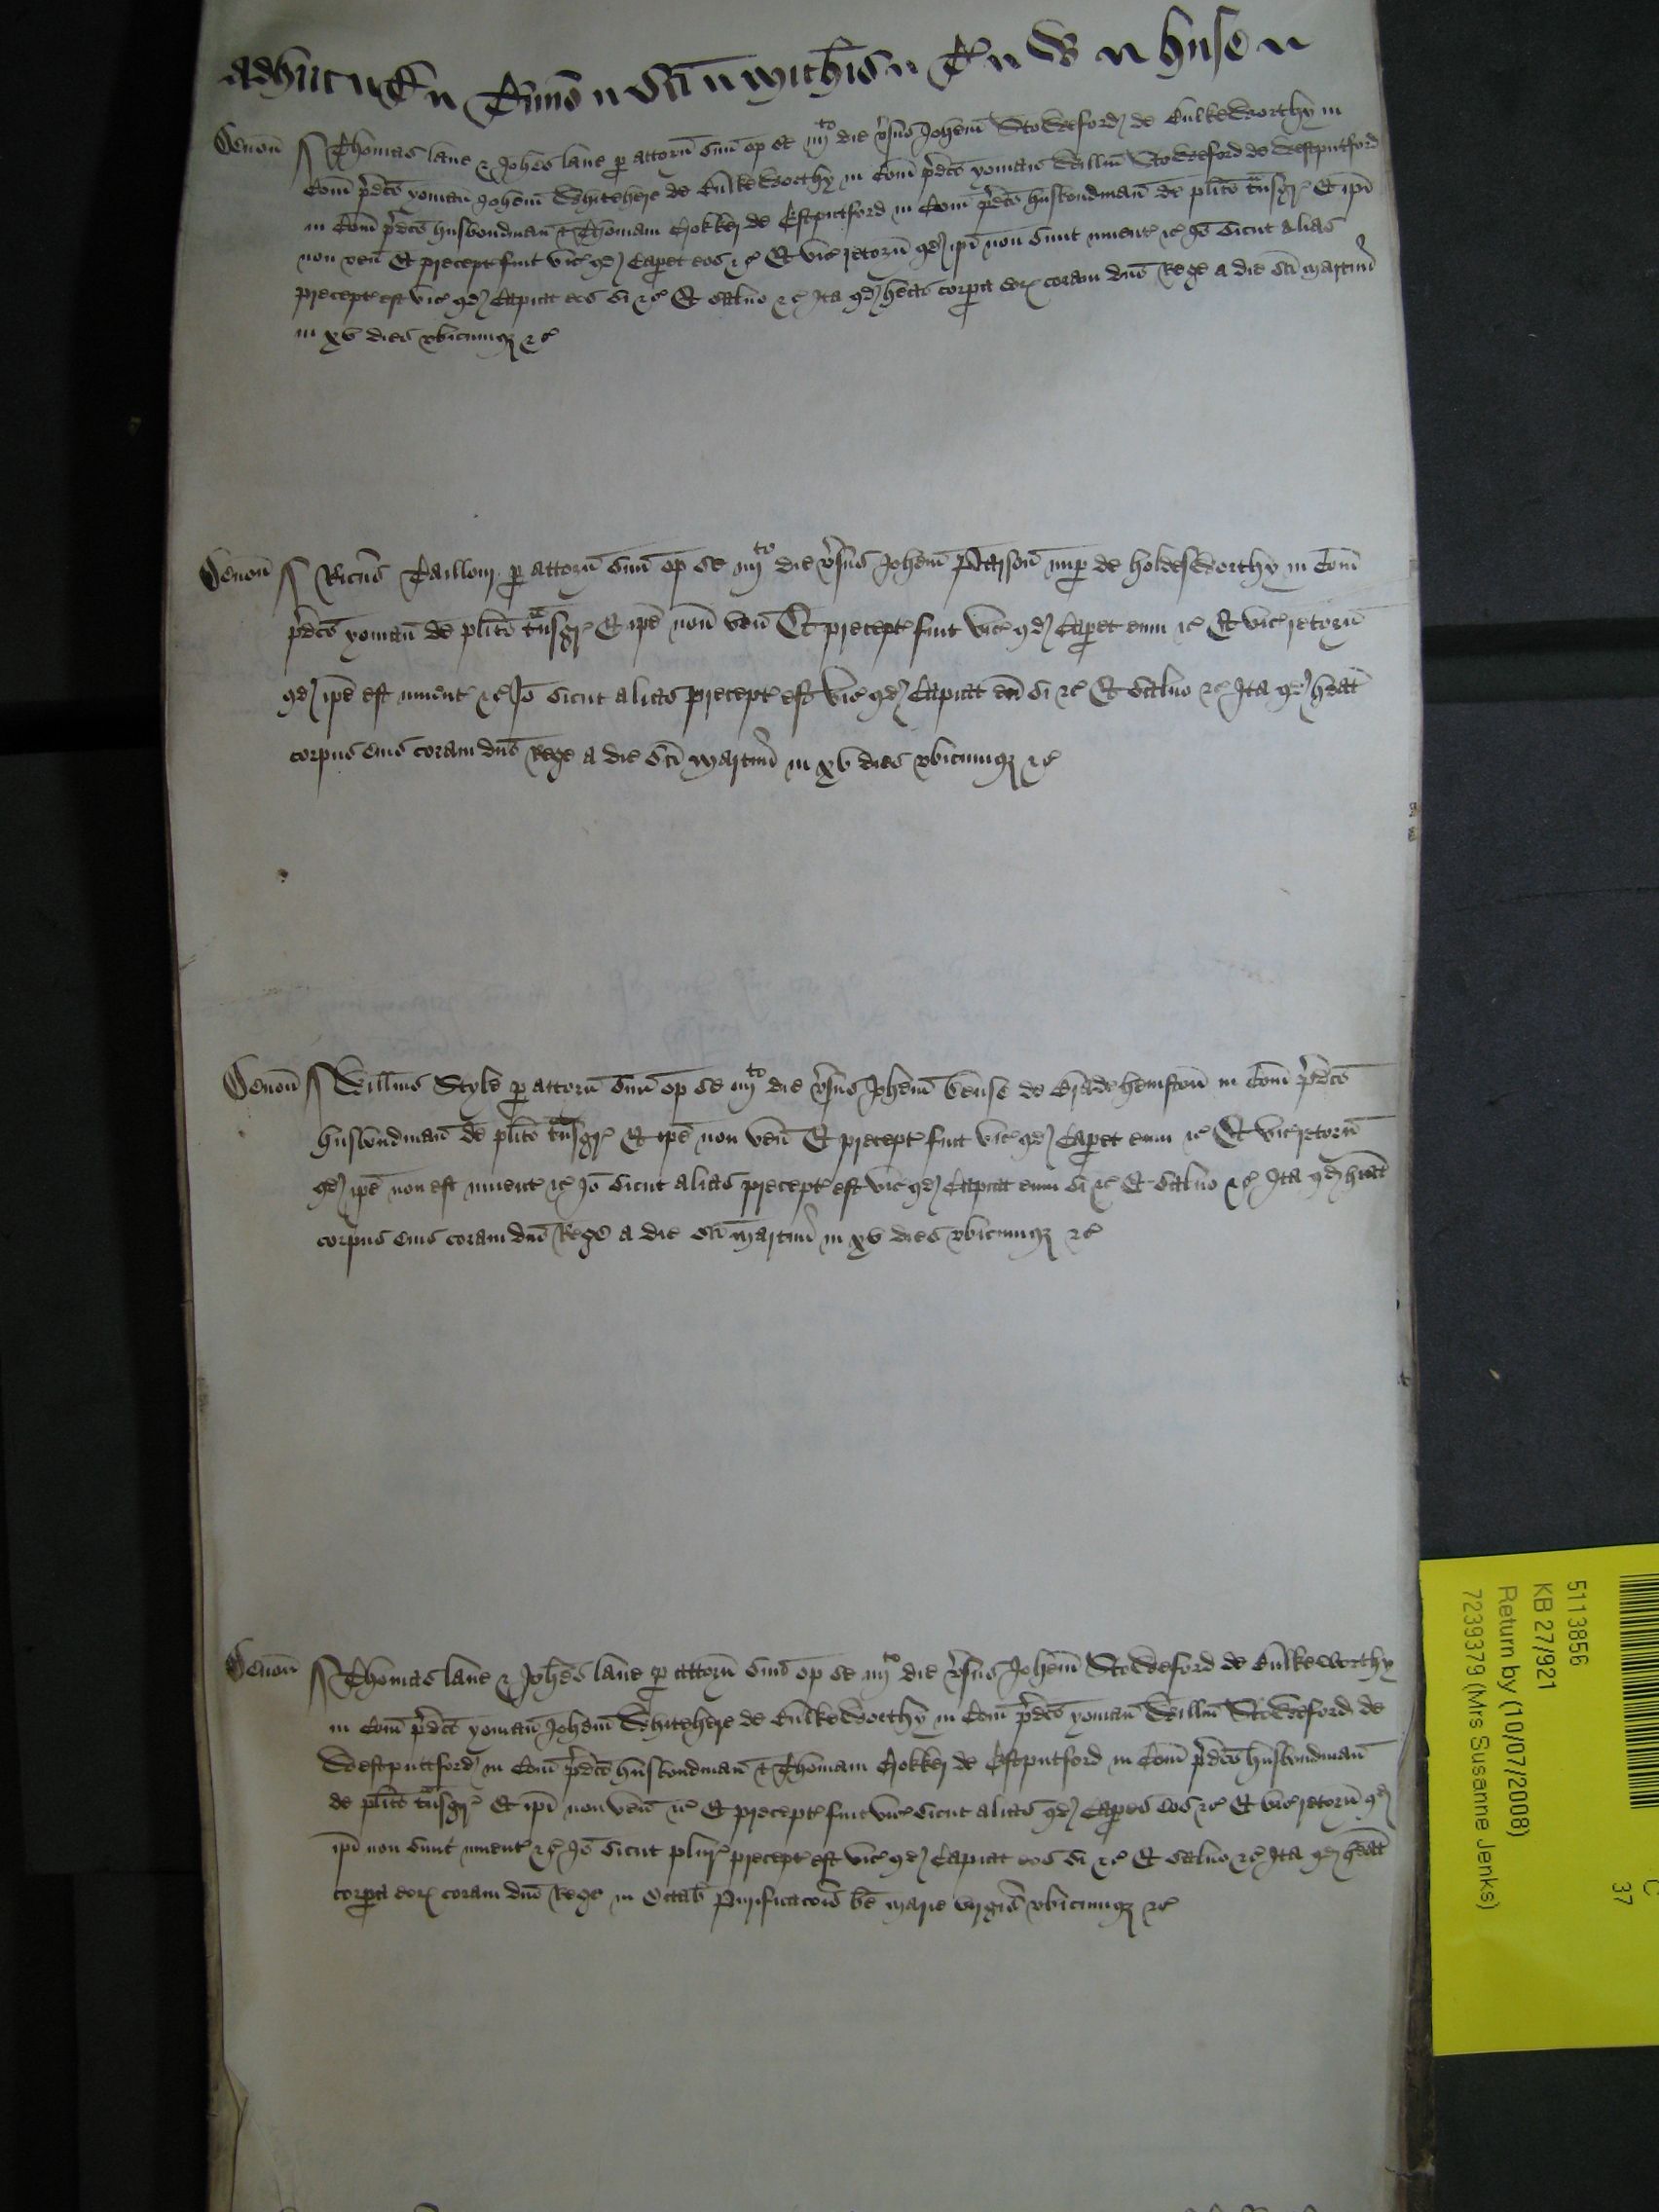 Adhuc de Termino sci Michis W huse
Devon Thomas lane & Johes lane p attorn suu op se iiijto die vsus Johem Stoweford de Bulkeworthy in
Com pdco yoman Johem Whitehere de Bulkeworthy in Com pdco yoman Willm Stoweford de Westputford
in Com pdco husbondman & Thomam Cokker de Estputford in Com pdco husbondman de plito tnsgr Et ipi
non ven Et precept fuit vic qd Caperet eos &c Et vic retorn qd ipi non sunt invent &c Jo sicut alias
precept est vic qd Capiat eos si &c Et salvo &c Ita qd heat corpa eor coram dno Rege a die sci Martini
in xv dies vbicumq &c
Devon Ricus Taillour p attorn suu op se iiijto die vsus Johem Parson nup de holdesworthy in Com
pdco yoman de plito tnsgr Et ipe non ven Et precept fuit vic qd Caperet eum &c Et vic retorn
qd ipe est invent &c Jo sicut alias precept est vic qd Capiat eu si &c Et salvo &c Ita qd heat
corpus eius coram dno Rege a die sci Martini in xv dies vbicumq &c
Devon Willms Style p attorn suu op se iiijto die vsus Johem de hemston in Com pdco
husbondman de plito tnsgr Et ipe non ven Et precept fuit vic qd Caperet eum &c Et vic retorn
qd ipe non est invent &c Jo sicut alias precept est vic qd Capiat eum si &c Et salvo &c Ita qd heat
corpus eius coram dno Rege a die sci Martini in xv dies vbicumq &c
Devon Thomas lane & Johes lane p attorn suu op se iiijto die vsus Johem Stoweford de Bulkeworthy
in Com pdco yoman Johem Whitehere de Bulkeworthy in Com pdco yoman Willm Stoweford de
Westputtford in Com pdco husbondman & Thomam Cokker de Estputford in Com pdco husbondman
de plito tnsgr Et ipi non ven &c Et precept fuit vic sicut alias qd Caperet eos &c Et vic retorn qd
ipi non sunt invent &c Jo sicut plur precept est vic qd Capiat eos si &c Et salvo &c Ita qd heat
corpa eor coram dno Rege in Octab Purificacois be Marie virgis vbicumq &c
5113856
KB 27/921
Return by (10/07/2008)
7239379 (Mrs Susanne Jenks)
37